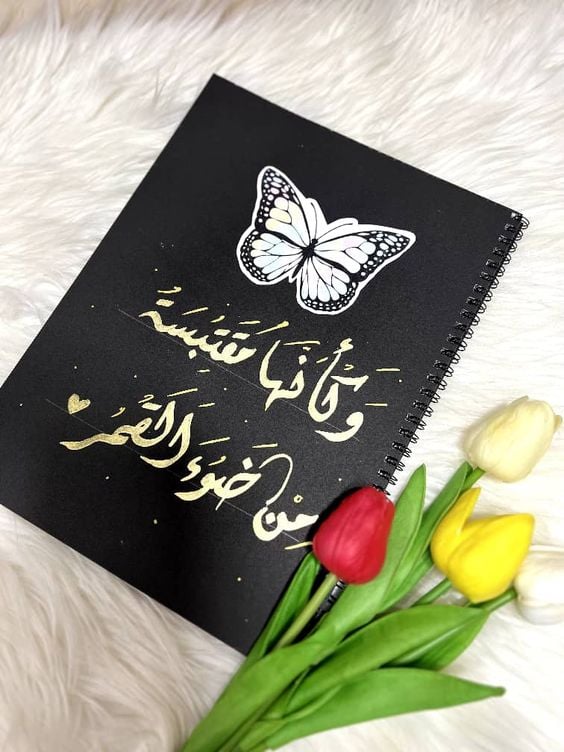 وَكَأَنَّهَا مُقْتَبِسَةٌ
مِنْ ضَوْءِ الْقَمَرُ